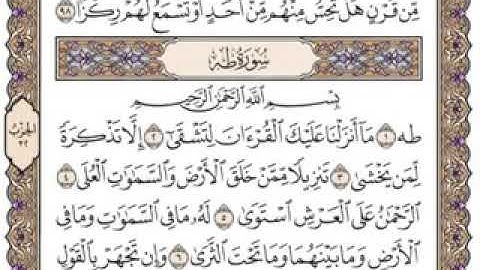 مِّن قَرْنٍ هَلْ تُحِسُّ مِنْهُم مِّنْ أَحَدٍ أَوْ تَسْمَعُ لَهُمْ رِكْزًا ٩٨
سُورَةُ طه
بِسْمِ اللَّهِ الرَّحْمَٰنِ الرَّحِيمِ
طه ١ مَا أَنزَلْنَا عَلَيْكَ الْقُرْءَانَ لِتَشْقَىٰ ٢ إِلَّا تَذْكِرَةً
لِّمَن يَخْشَىٰ ٣ تَنزِيلًا مِّمَّنْ خَلَقَ الْأَرْضَ وَالسَّمَٰوَٰتِ الْعُلَى ٤
الرَّحْمَٰنُ عَلَى الْعَرْشِ اسْتَوَىٰ ٥ لَهُ مَا فِي السَّمَٰوَٰتِ وَمَا فِي
الْأَرْضِ وَمَا بَيْنَهُمَا وَمَا تَحْتَ الثَّرَىٰ ٦ وَإِن تَجْهَرْ بِالْقَوْلِ
الحزب
٣٢